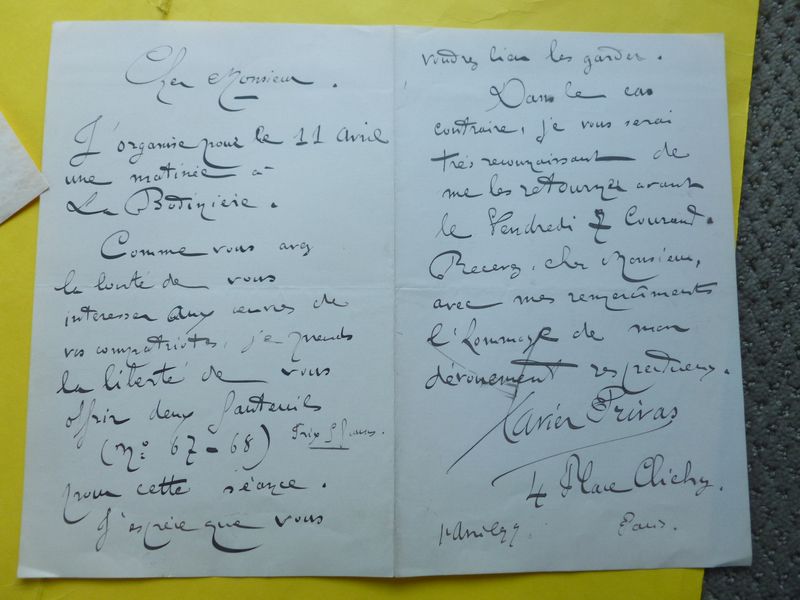 Cher Monsieur.
J'organise pour le 11 Avril
une matinée à
La Bodinière.
Comme vous avez
la bonté de vous
interesser aux œuvres de
vos compatriotes, je prends
la liberté de vous
offrir deux fauteuils
(Nº 67-68) Prix francs.
pour cette séance.
J'espère que vous
voudrez bien les garder.
Dans le cas
contraire, je vous serai
très reconnaissant de
me les retourner avant
le Vendredi 7 Courant.
Recevez, cher Monsieur,
avec mes remerciments
l'hommage de mon
dévouement respectueux.
Xavier Privas
4 Place Clichy.
Paris.
1er Avril 99